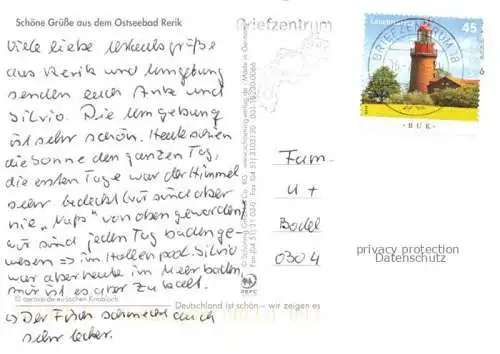 Schöne Grüße aus dem Ostseebad Rerik
Viele liebe Urlaubsgrüße
aus Rerik und Umgebung
senden euch Anke und
Silvio. Die Umgebung
ist sehr schön. Heute schien
die Sonne den ganzen Tag,
die ersten Tage war der Himmel
sehr bedeckt (wir sind aber
nie „Naß" von oben geworden)
wir sind jeden Tag baden ge-
wesen => im Hallenbad. Silvio
war aber heute im Meer baden,
mir ist es aber zu kalt.
© aerowerde.eu/jochen Knobloch
=> Der Fisch schmeckt auch
sehr lecker.
Deutschland ist schön – wir zeigen es
Briefzentrum
Made in Germany
Leuchtturm
45
BRIEFZENTRUM 18
BUK
Fam.
u +
Badel
0304
privacy protection
Datenschutz